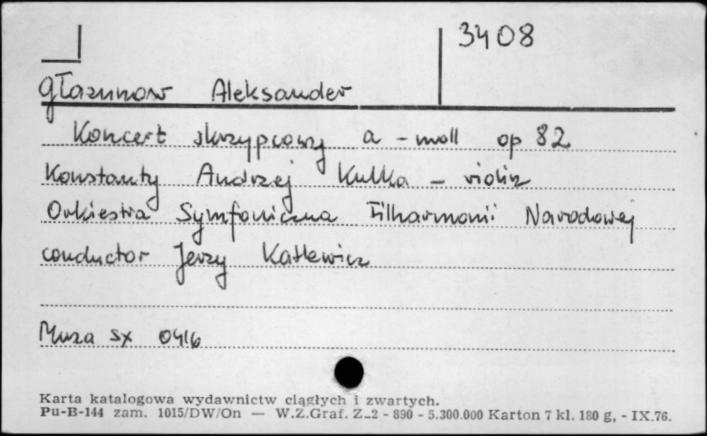 3408
Głazunow Aleksander
Koncert skrzypcowy a - moll op 82
Konstanty Andrzej Kulka - violin
Orkiestra Symfoniczna Filharmonii Narodowej
conductor Jerzy Katlewicz
Muza SX 0416
Karta katalogowa wydawnictw ciągłych i zwartych.
Pu-B-144 zam. 1015/DW/On — W.Z.Graf. Z-2 - 890 - 5.300.000 Karton 7 kl. 180 g, - IX.76.